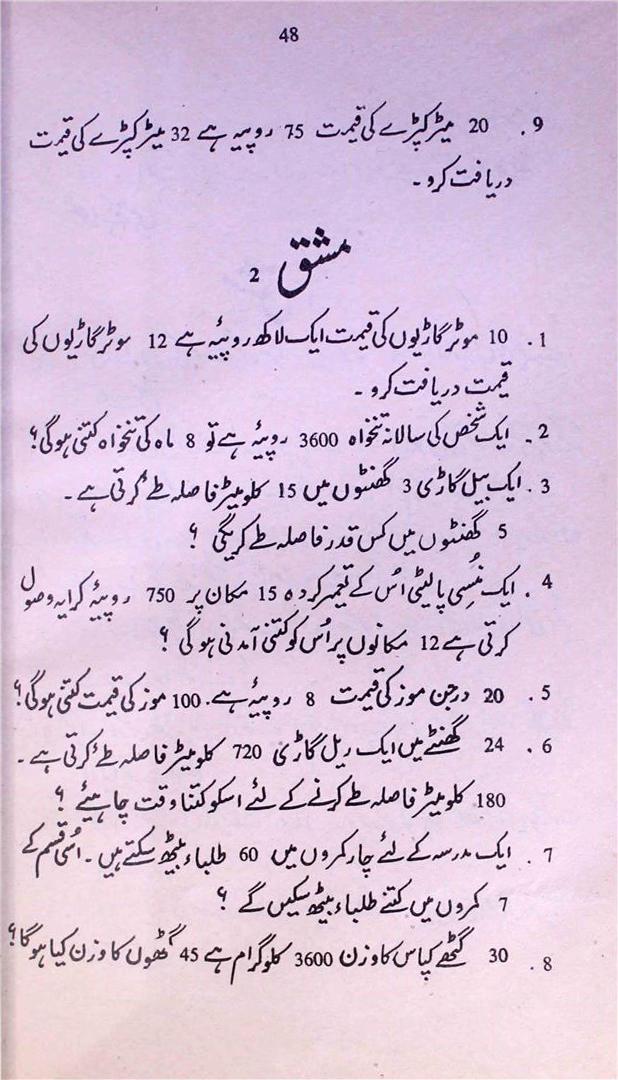 48
9. 20 میٹر کپڑے کی قیمت 75 روپیہ ہے 32 میٹر کپڑے کی قیمت
دریافت کرو ۔
مشق 2
1. 10 موٹر گاڑیوں کی قیمت ایک لاکھ روپیۂ ہے 12 موٹر گاڑیوں کی
قیمت دریافت کرو ۔
2. ایک شخص کی سالانہ تنخواہ 3600 روپیۂ ہے تو 8 ماہ کی تنخواہ کتنی ہوگی؟
3. ایک بیل گاڑی 3 گھنٹوں میں 15 کلو میٹر فاصلہ طے کرتی ہے ۔
5 گھنٹوں میں کس قدر فاصلہ طے کریگی ؟
4. ایک مُنسی پالیٹی اس کے تعمیر کردہ 15 مکان پر 750 روپیۂ کرایہ وصول
کرتی ہے 12 مکانوں پر اُس کو کتنی آمدنی ہو گی ؟
5. 20 درجن موز کی قیمت 8 روپیۂ ہے. 100 موز کی قیمت کتنی ہوگی؟
6. 24 گھنٹے میں ایک ریل گاڑی 720 کلو میٹر فاصلہ طے کرتی ہے ۔
180 کلو میٹر فاصلہ طے کرنے کے لئے اسکو کتنا وقت چاہیئے ؟
7. ایک مدرسہ کے لئے چار کمروں میں 60 طلباء بیٹھ سکتے ہیں ۔ اُسی قسم کے
7 کمروں میں کتنے طلباء بیٹھ سکیں گے ؟
8. 30 گٹھے کپاس کا وزن 3600 کلو گرام ہے 45 گٹھوں کا وزن کیا ہوگا؟